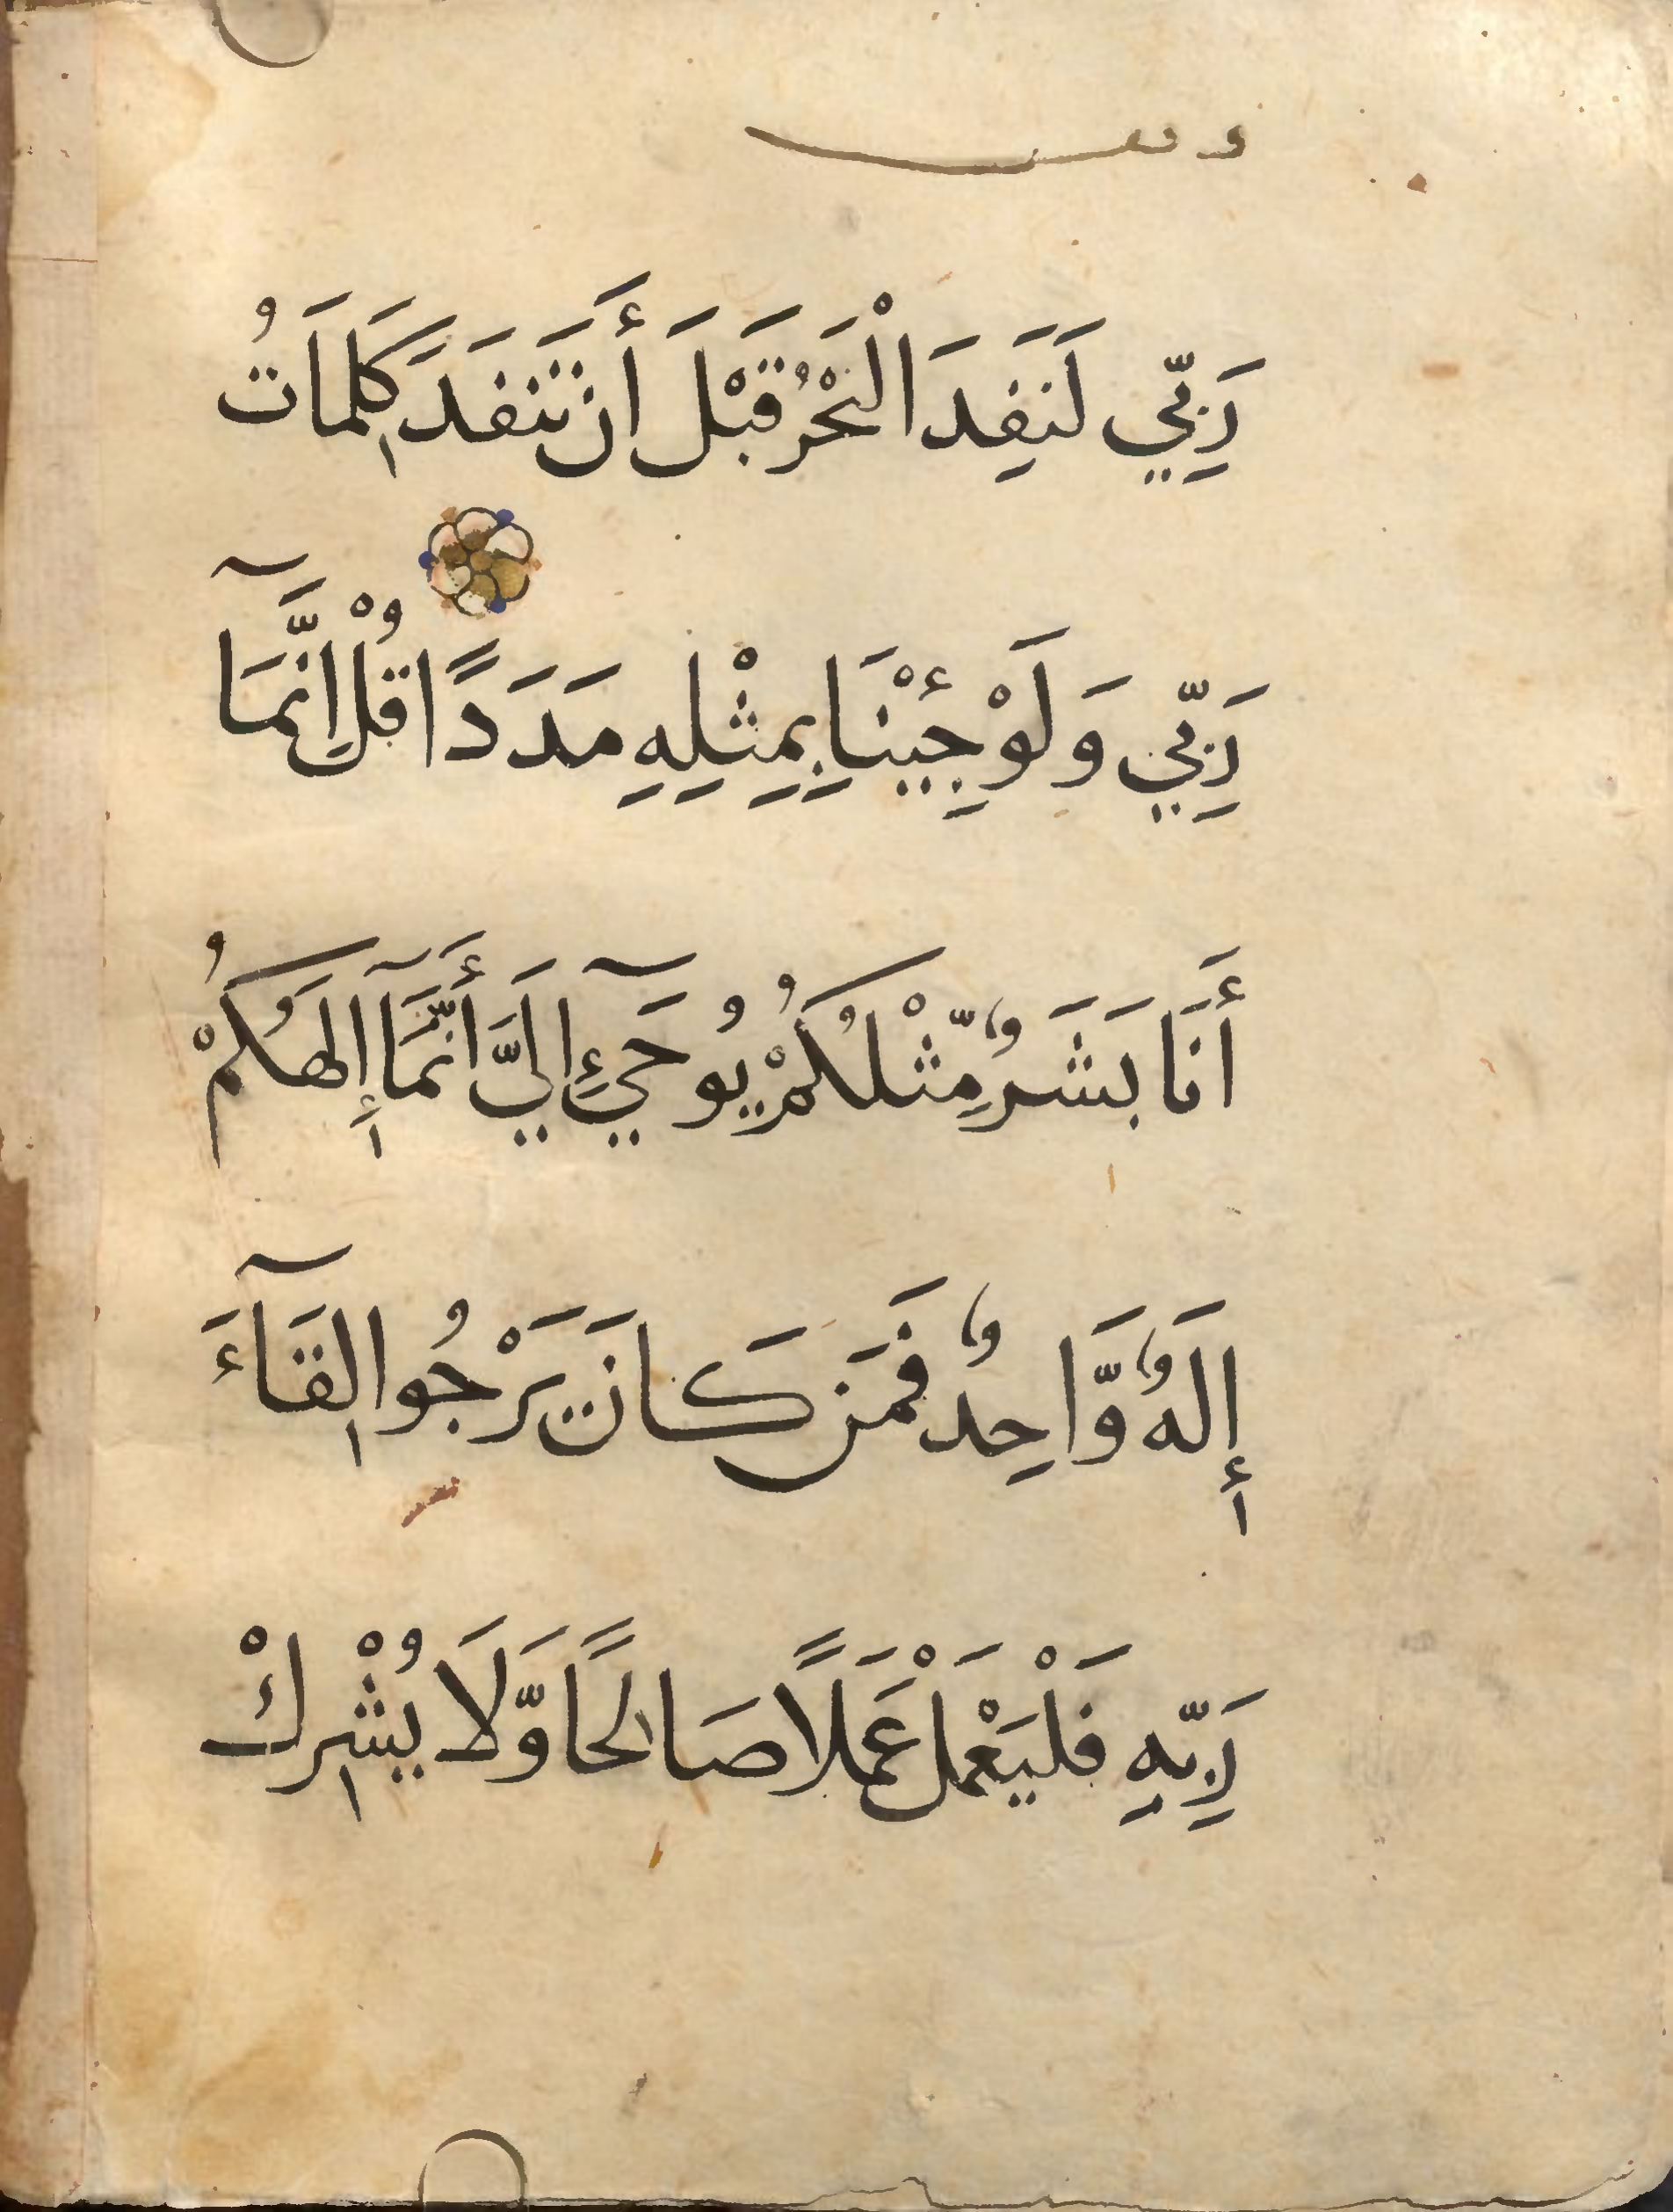 رَبِّي لَنَفِدَ الْبَحْرُ قَبْلَ أَن تَنفَدَ كَلِمَاتُ
رَبِّي وَلَوْ جِئْنَا بِمِثْلِهِ مَدَدًا قُلْ إِنَّمَآ
أَنَا بَشَرٌ مِّثْلُكُمْ يُوحَىٰٓ إِلَيَّ أَنَّمَآ إِلَهُكُمْ
إِلَهٌ وَّاحِدٌ فَمَن كَانَ يَرْجُوا لِقَآءَ
رَبِّهِ فَلْيَعْمَلْ عَمَلًا صَالِحًا وَّلَا يُشْرِكْ